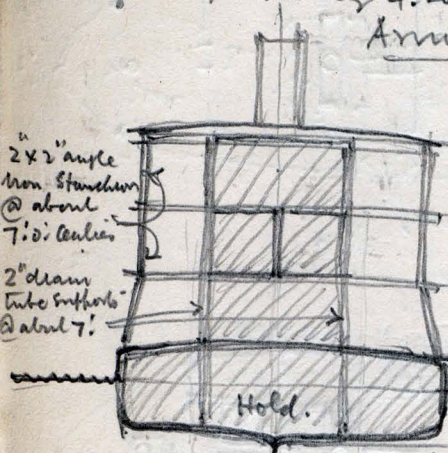 2"x2" angle
Iron Stanchions
@ about
7'.0" Centres
2" diam
tube supports
@ about 7'
Hold.